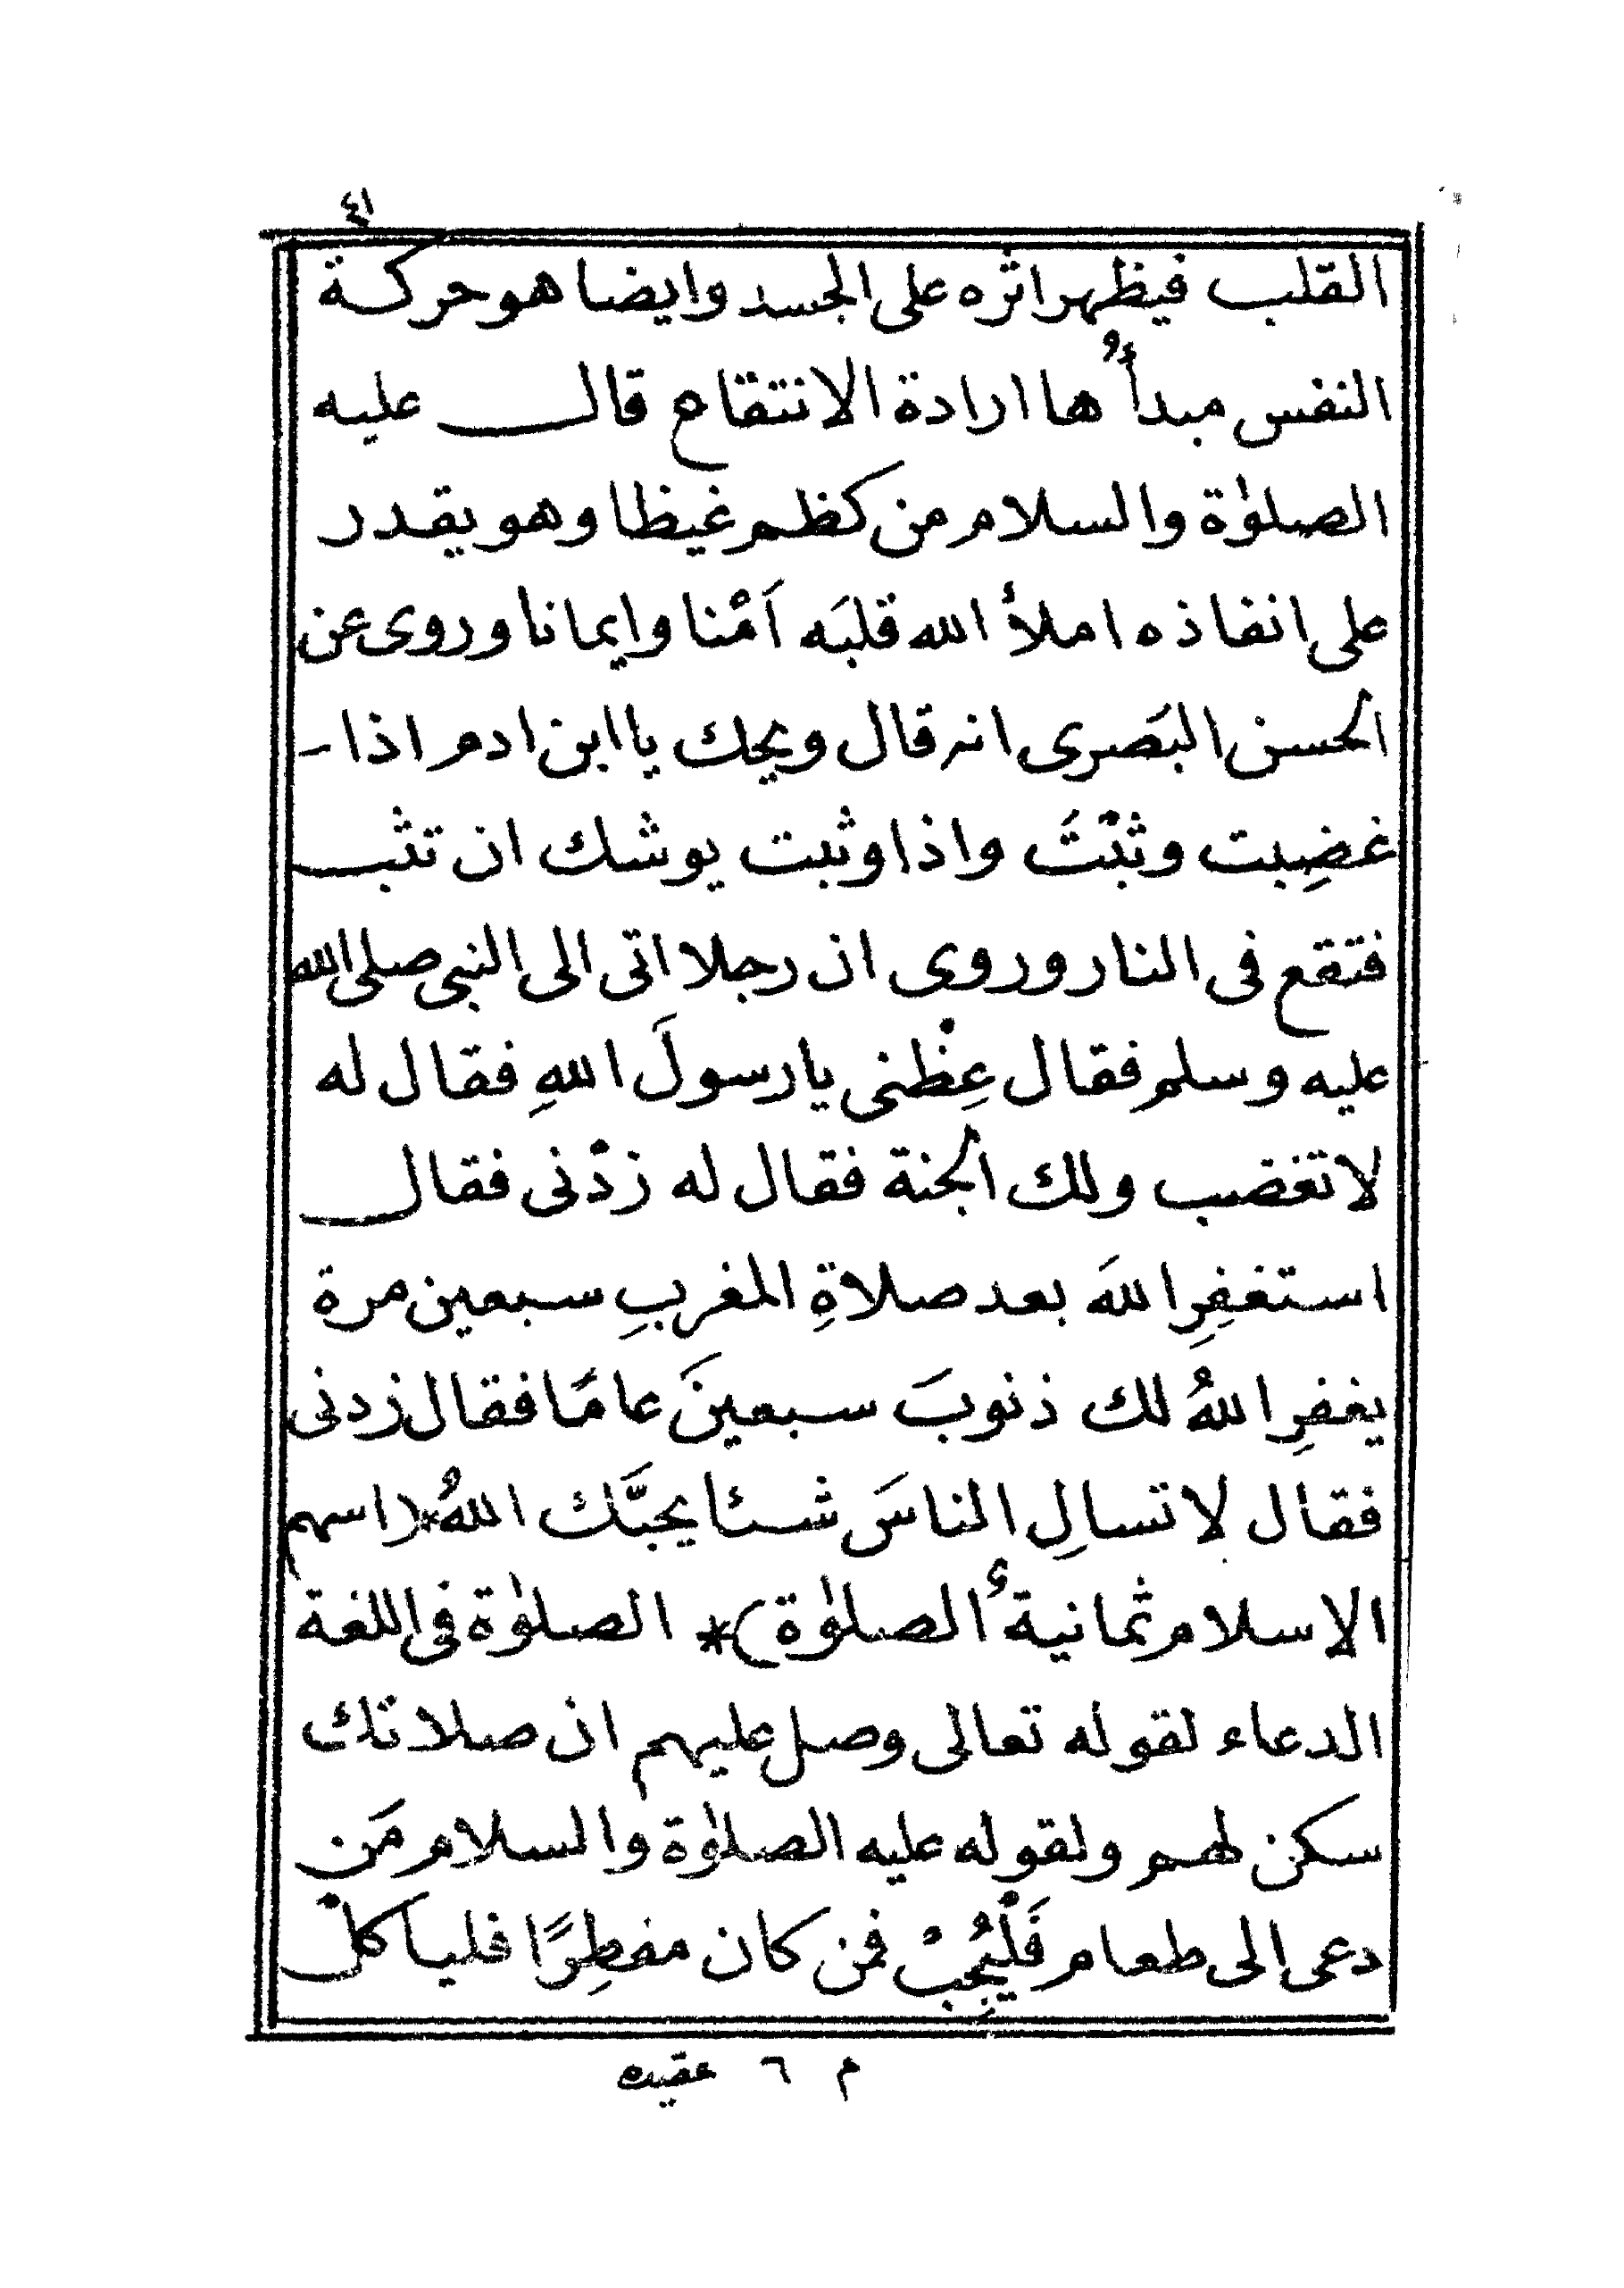 ٤١
القلب فيظهر اثره على الجسد وايضا هو حركة
النفس مبدأُها ارادة الانتقام قال عليه
الصلوٰة والسلام من كظم غيظا وهو يقدر
على انفاذه املأ الله قلبَه اَمْنا وايمانا وروى عن
الحسن البَصرى انه قال ويحك يا ابن ادم اذا -
غضِبت وثبْتَ واذا وثبت يوشك ان تثب
فتقع فى النار وروى ان رجلا اتى الى النبى صلى الله
عليه وسلم فقال عِظْنى يا رسولَ اللهِ فقال له
لا تغضب ولك الجنة فقال له زدْنى فقال
استغفِرِ اللهَ بعد صلاةِ المغربِ سبعين مرة
يغفرِ اللهُ لك ذنوبَ سبعينَ عامًا فقال زدنى
فقال لا تسالِ الناسَ شئا يحبَّك اللهُ *( اسهم
الاسلام ثمانيةٌ الصلوٰة )* الصلوٰة فى اللغة
الدعاء لقوله تعالى وصل عليهم ان صلاتك
سكن لهم ولقوله عليه الصلوٰة والسلام مَن
دعى الى طعام فَلْيُجِبْ فمن كان مفطِرًا فلياكلْ
م ٦ عقيده